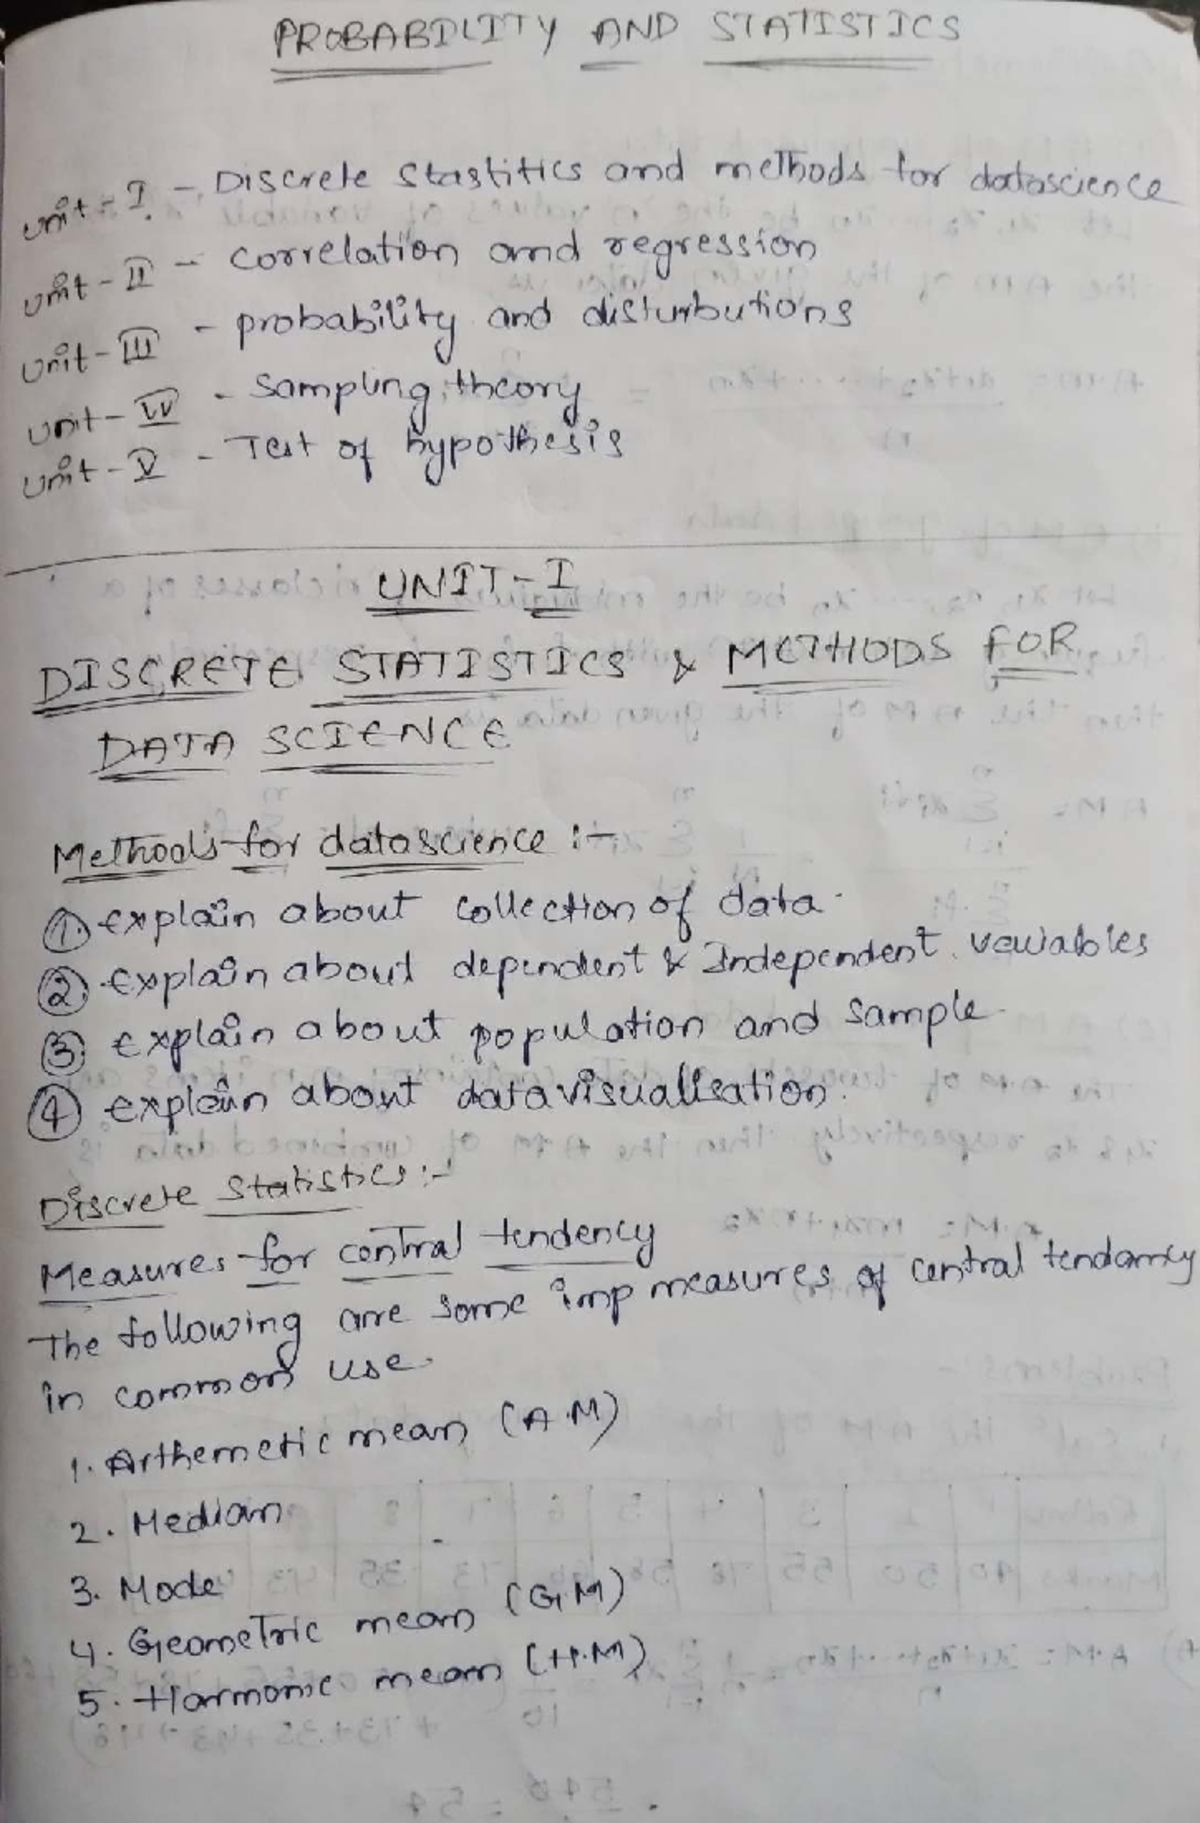 PROBABILITY AND STATISTICS
unit-I - Discrete Stastitics and methods for datascience
unit-II - correlation and regression
unit-III - probability and disturbutions
unit-IV - sampling theory
unit-V - Test of hypothesis
UNIT-I
DISCRETE STATISTICS & METHODS FOR
DATA SCIENCE
Methods for datascience :-
① explain about collection of data.
② explain about dependent & Independent variables
③ explain about population and sample
④ explain about data visualisation.
Discrete Statistics :-
Measures for central tendency
The following are some imp measures of central tendancy
in common use.
1. Arthemetic mean (A.M)
2. Median
3. Mode
4. Geometric mean (G.M)
5. Harmonic mean (H.M)